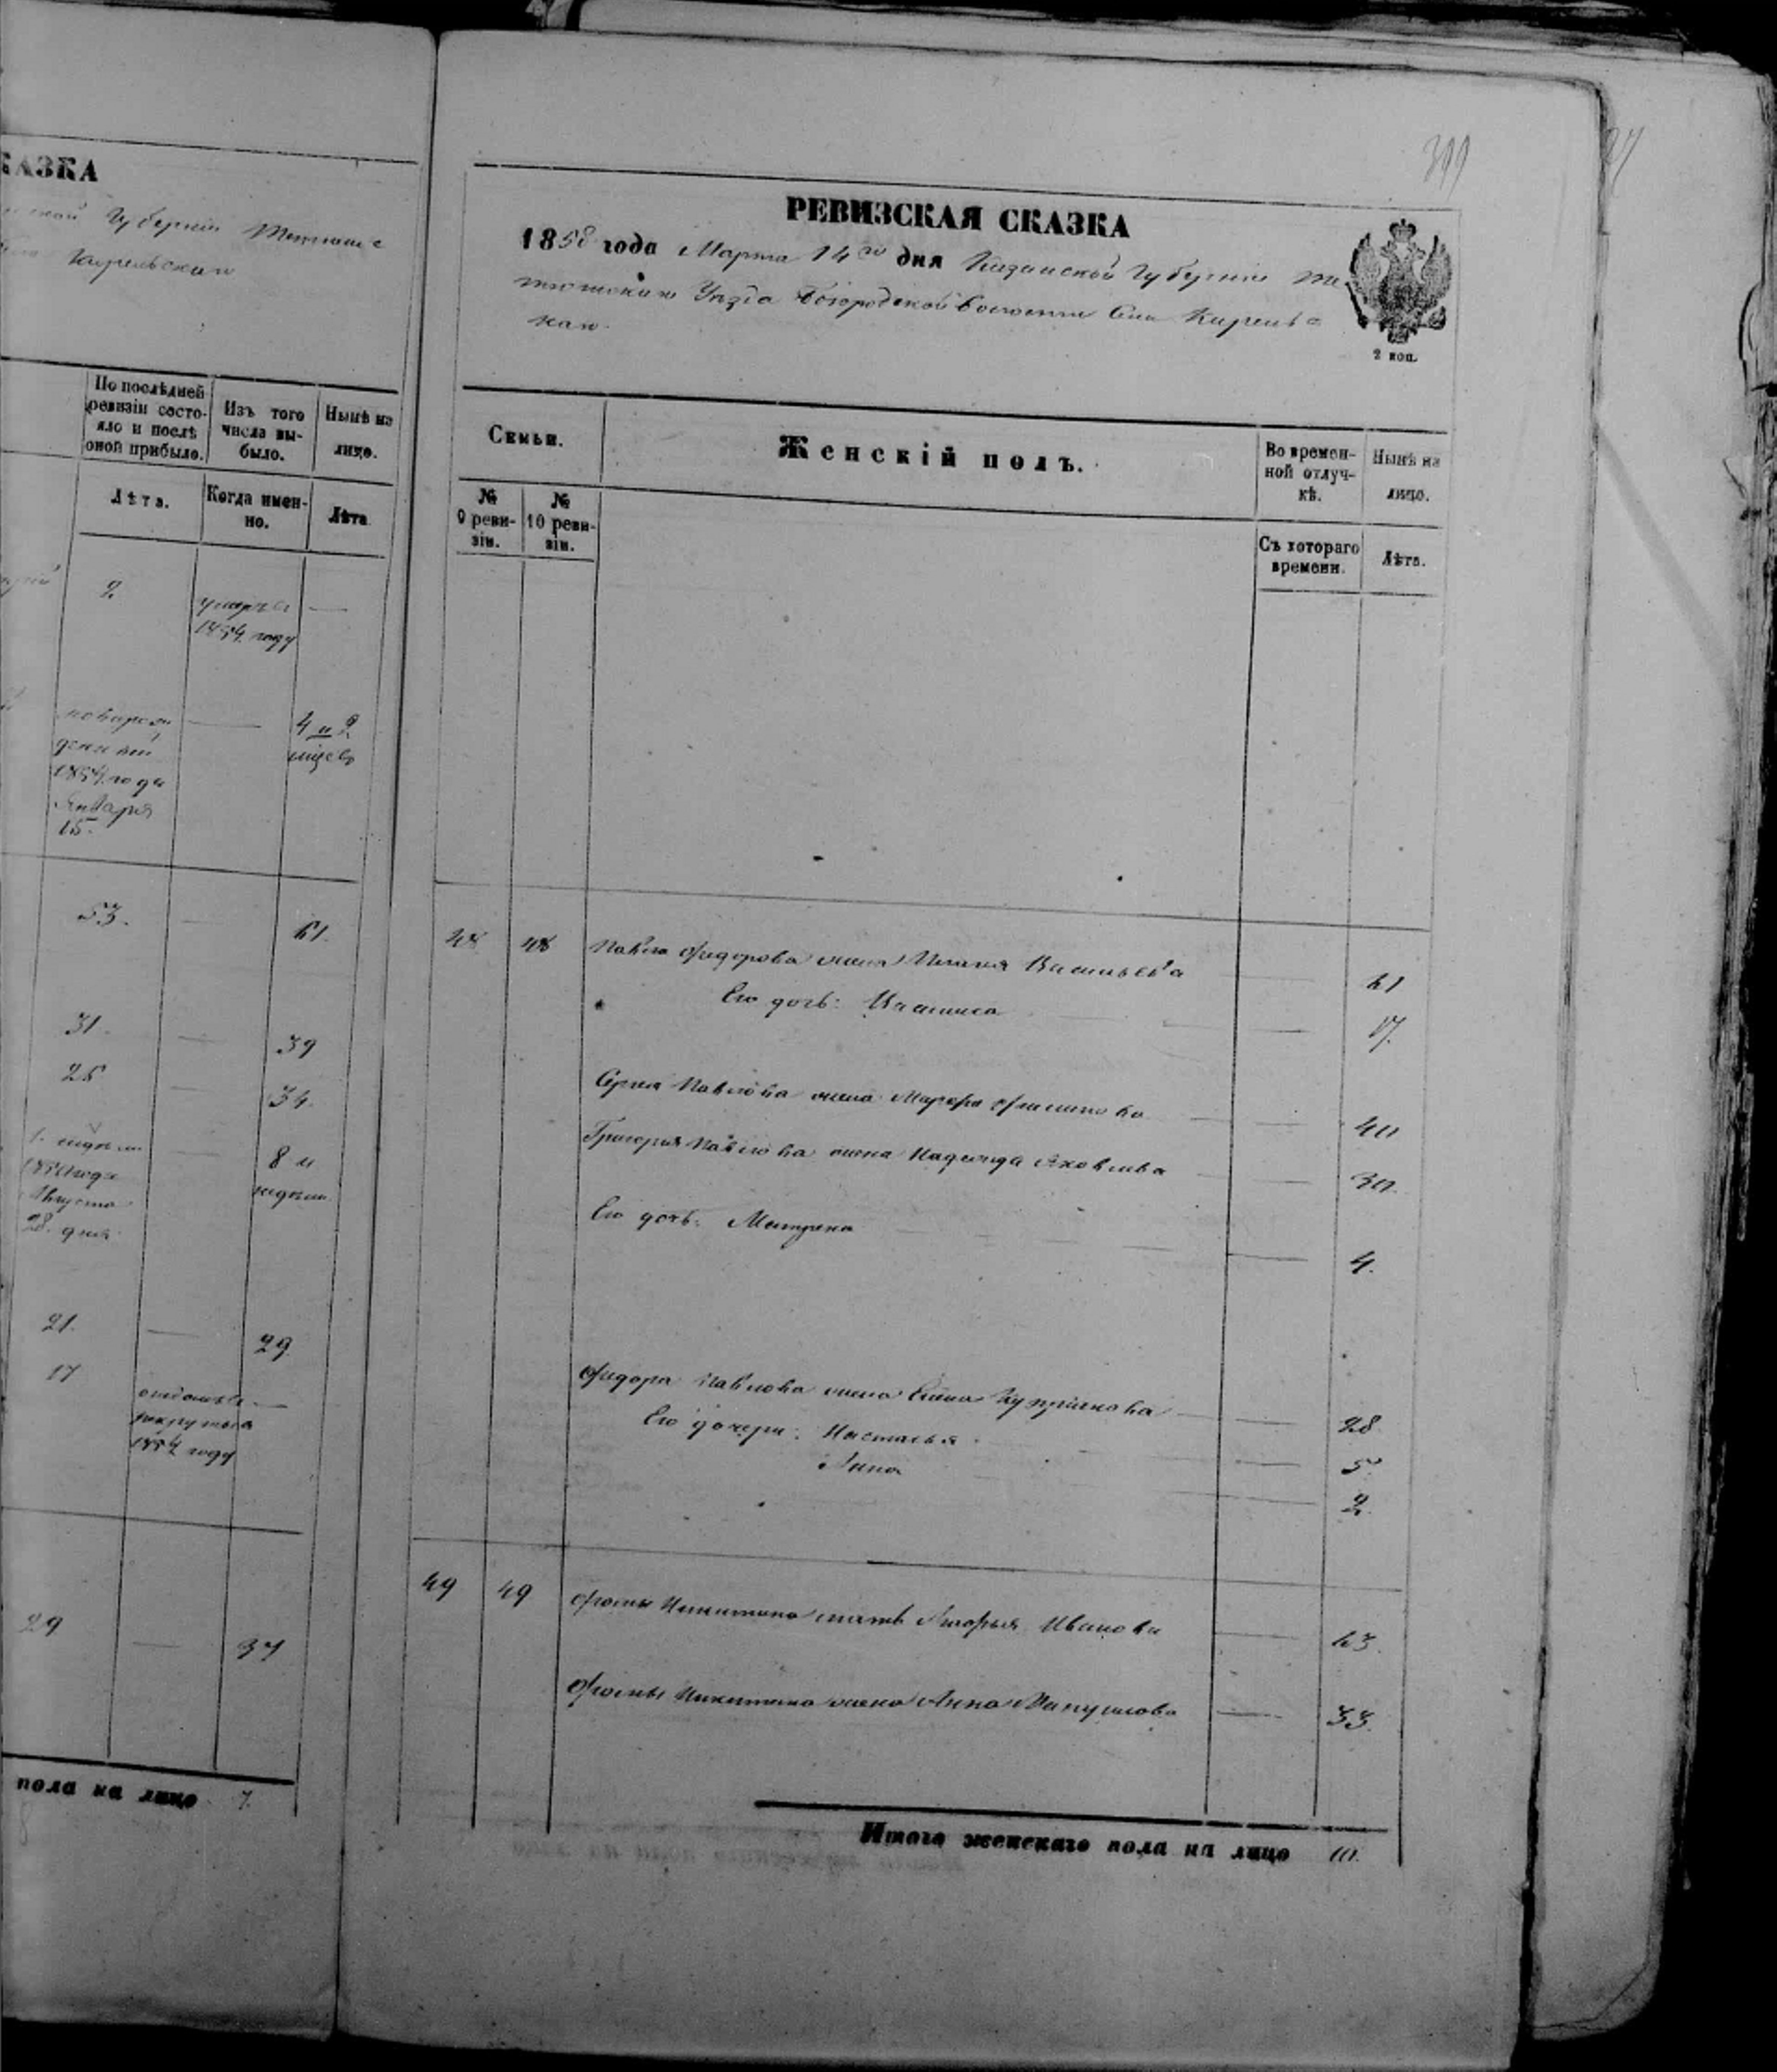 КАЗКА
Губернии
Кирельскаго
По послѣдней
ревизіи состо-
яло и послѣ
оной прибыло.
Изъ того
числа вы-
было.
Нынѣ на
лицо.
Лѣта.
Когда имен-
но.
Лѣта
2
умеръ
1854 году
—
новорож
денный
1854 года
Января
15.
—
4 и 2
мѣсяц
53.
—
61.
31.
—
39
26
—
34.
1. недѣли
года
Августа
28. дня
—
8 и
недѣли
21.
—
29
17
отданъ въ
рекруты
1854 году
—
29
—
37
пола на лицо 7.
8
РЕВИЗСКАЯ СКАЗКА
1858 года Марта 14го дня Казанской Губерніи Те-
тюшскаго Уѣзда Богородской Волости Села Кирельс
каго.
2 коп.
Семьи.
Женскій полъ.
Во времен-
ной отлуч-
кѣ.
Нынѣ на
лицо.
№
9 реви-
зіи.
№
10 реви-
зіи.
Съ котораго
времени.
Лѣта.
48 48 Павла Федорова жена Васильева — 61
Его дочь: — 17.
Сергея Павлова жена Марфа Филипова — 40
Григорья Павлова жена Надежда Яковлева — 30.
Его дочь: Матрена — 4.
Федора Павлова жена Елена Куприянова — 28
Его дочери: Настасья — 5
Анна — 2.
49 49 Фомы Никитина мать Марфа Иванова — 63.
Фомы Никитина жена Анна Мануилова — 33.
Итого женскаго пола на лицо 10.